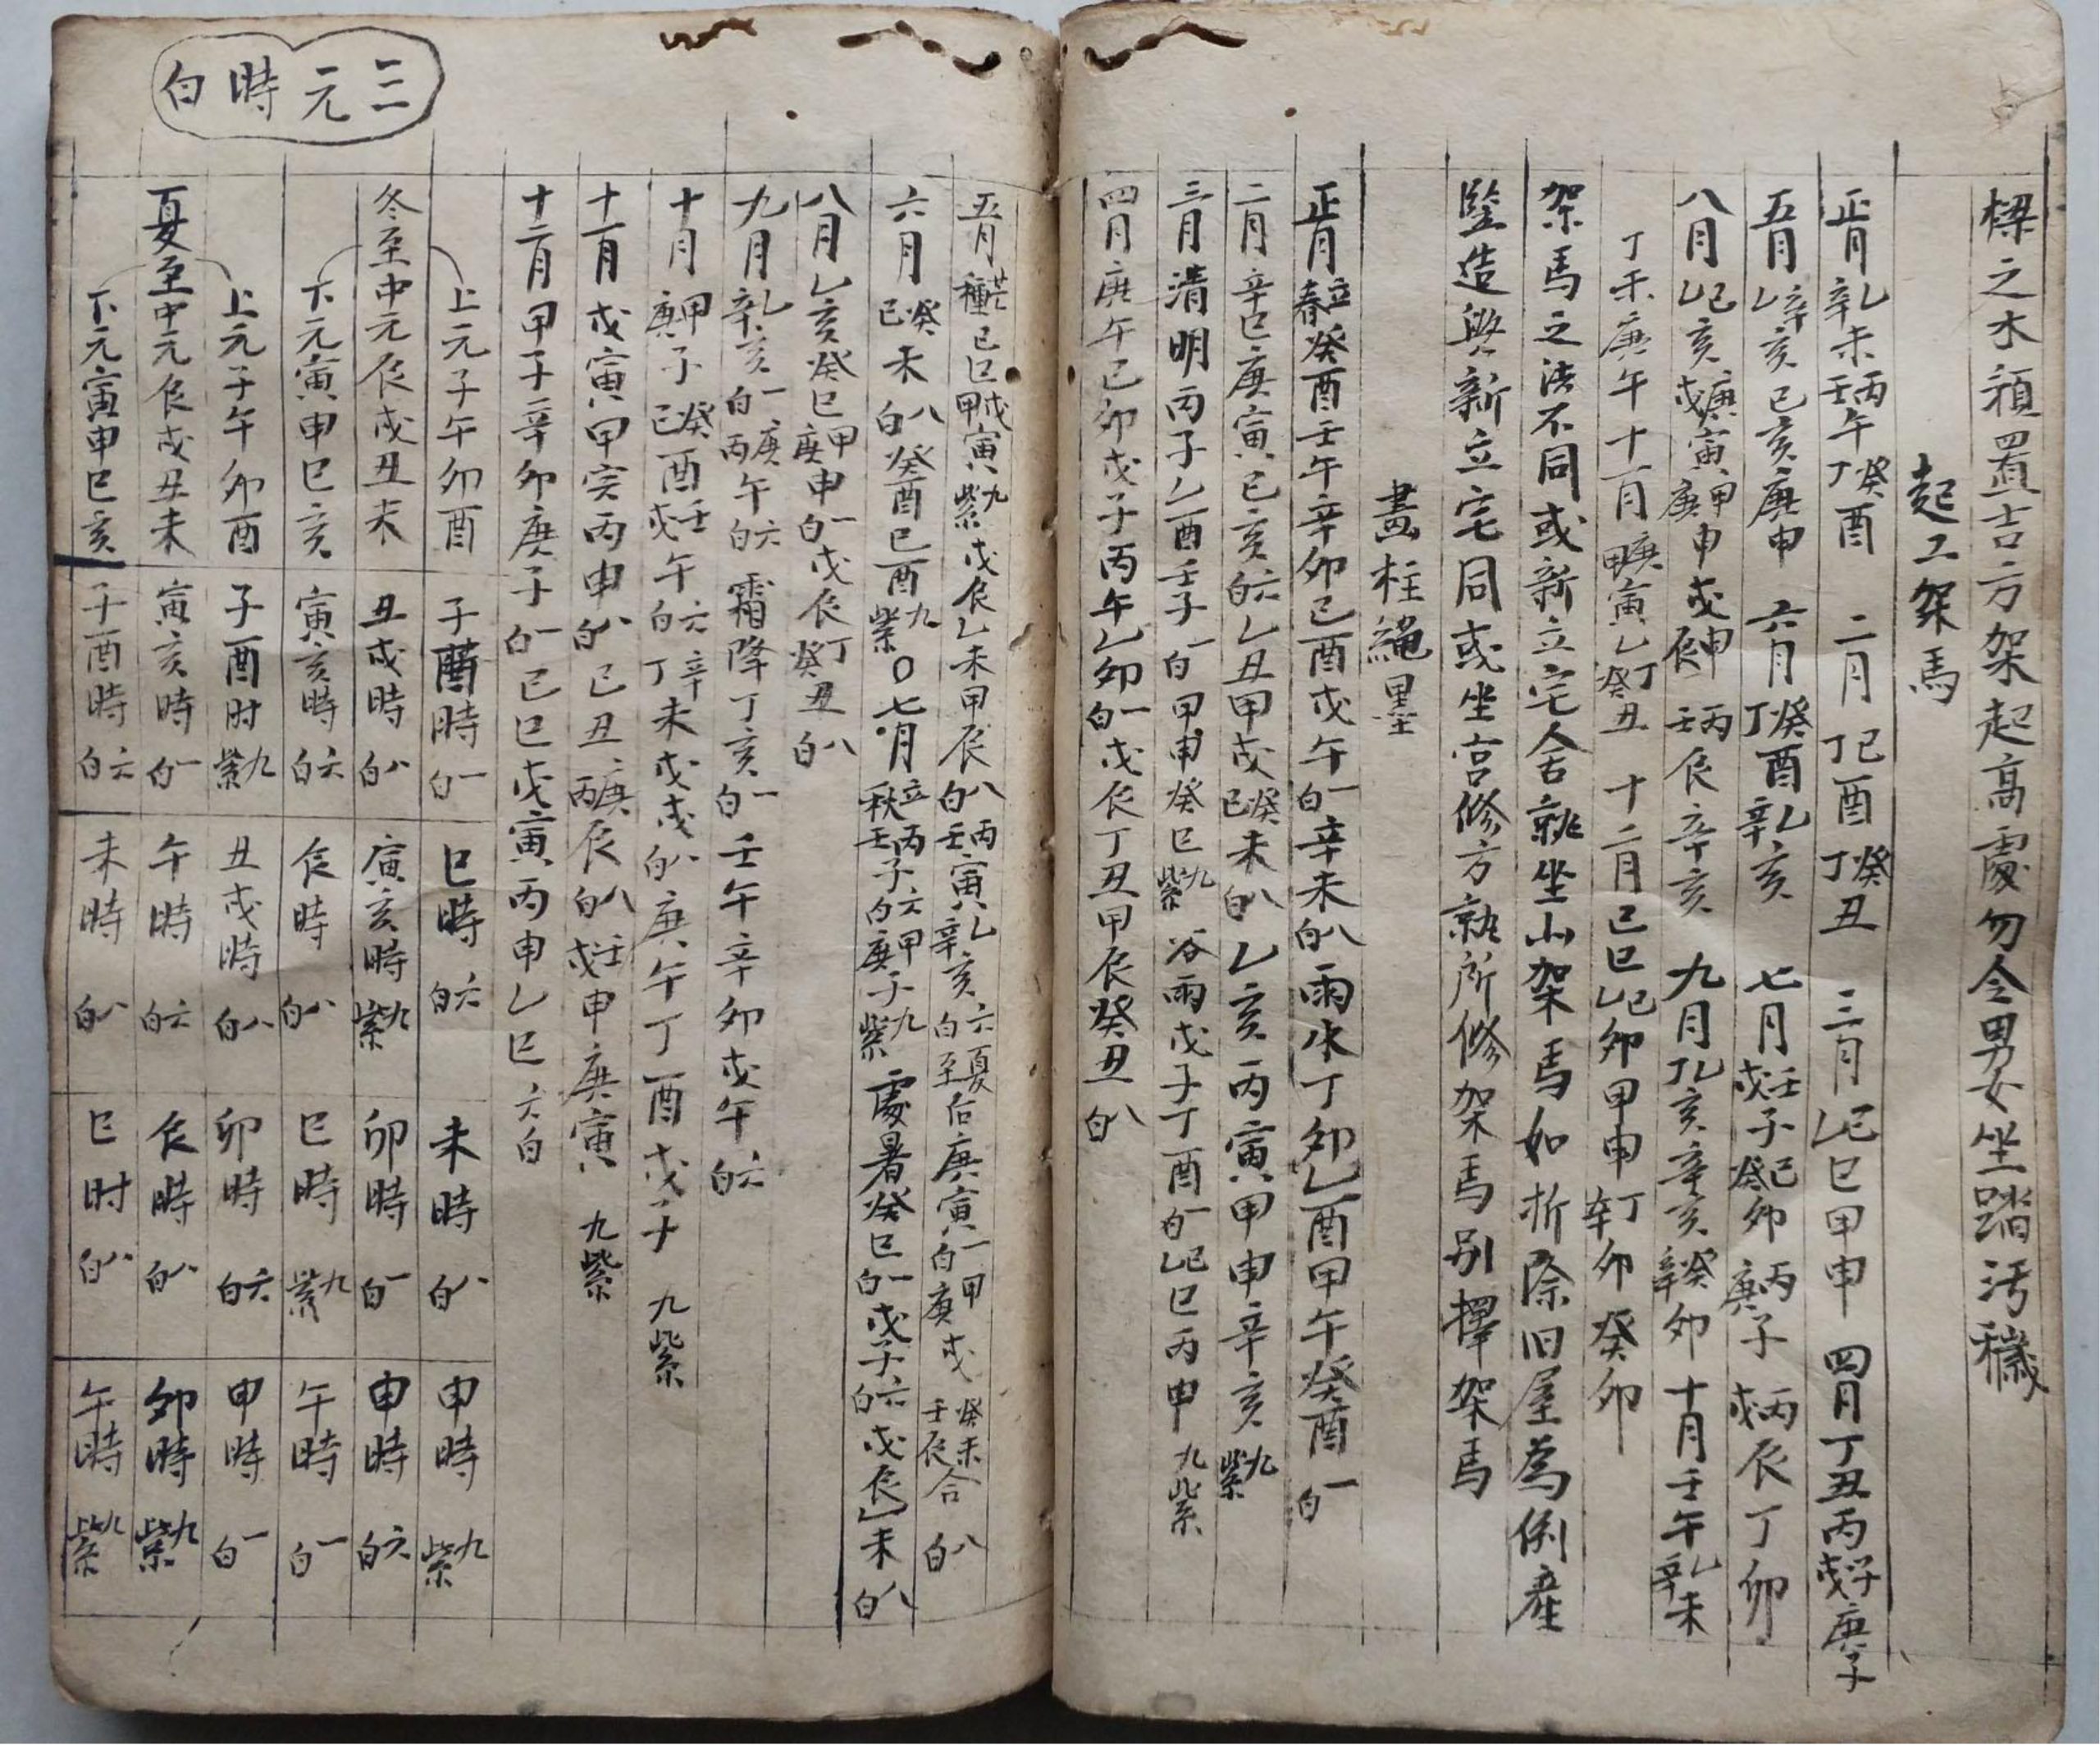 樑之木須置吉方架起高處勿令男女坐踏汚穢
起工架馬
正月乙辛未丙壬午癸丁酉 二月己丁酉癸丁丑 三月己乙巳甲申 四月丁丑丙戌子庚子
五月辛乙亥己亥庚申 六月癸丁酉乙辛亥 七月壬戊子己癸卯丙庚子 丙戊辰丁卯
八月己乙亥庚戊寅甲庚申戊甲辰 丙壬辰辛亥 九月乙丁亥辛亥癸辛卯 十月壬午乙辛未
丁未庚午十一月甲庚寅乙丁癸丑 十二月己巳己乙卯甲申丁辛卯癸卯
架馬之法不同或新立宅舍就坐山架馬如折除旧屋為倒產
竪造與新立宅同或坐宮修方就所修架馬別擇架馬
畫柱繩墨
正月立春癸酉壬午辛卯己酉戊午一白辛未八白雨水丁卯乙酉甲午癸酉一白
二月辛巳庚寅己亥六白乙丑甲戌癸己未八白乙亥丙寅甲申辛亥九紫
三月清明丙子乙酉壬子一白甲申癸巳九紫 谷雨戊子丁酉一白己乙巳丙申九紫
四月庚午己卯戊子丙午乙卯一白戊辰丁丑甲辰癸丑八白
五月芒種己巳戊甲寅九紫戊辰乙未甲辰八白丙壬寅乙辛亥六白夏至后庚寅一白甲庚戌癸未壬辰合八白
六月癸己未八白癸酉己酉九紫○七月立秋丙壬子六白甲庚子九紫處暑癸巳一白戊子六白戊辰乙未八白
八月乙亥癸巳甲庚申一白戊辰丁癸丑八白
九月乙辛亥一白庚丙午六白 霜降丁亥一白壬午辛卯戊午六白
十月甲庚子癸己酉壬戊午六白辛丁未戊戌八白庚午丁酉戊子 九紫
十一月戊寅甲寅丙申八白己丑庚丙辰八白壬戊申庚寅 九紫
十二月甲子辛卯庚子一白己巳戊寅丙申乙巳六白
三元時白
上元子午卯酉 子酉時一白 巳時六白 未時八白 申時九紫
冬至中元辰戌丑未 丑戌時八白 寅亥時九紫 卯時一白 申時六白
下元寅申巳亥 寅亥時六白 辰時八白 巳時九紫 午時一白
上元子午卯酉 子酉时九紫 丑戌時八白 卯時六白 申時一白
夏至中元辰戌丑未 寅亥時一白 午時六白 辰時八白 卯時九紫
下元寅申巳亥 子酉時六白 未時八白 巳时八白 午時九紫